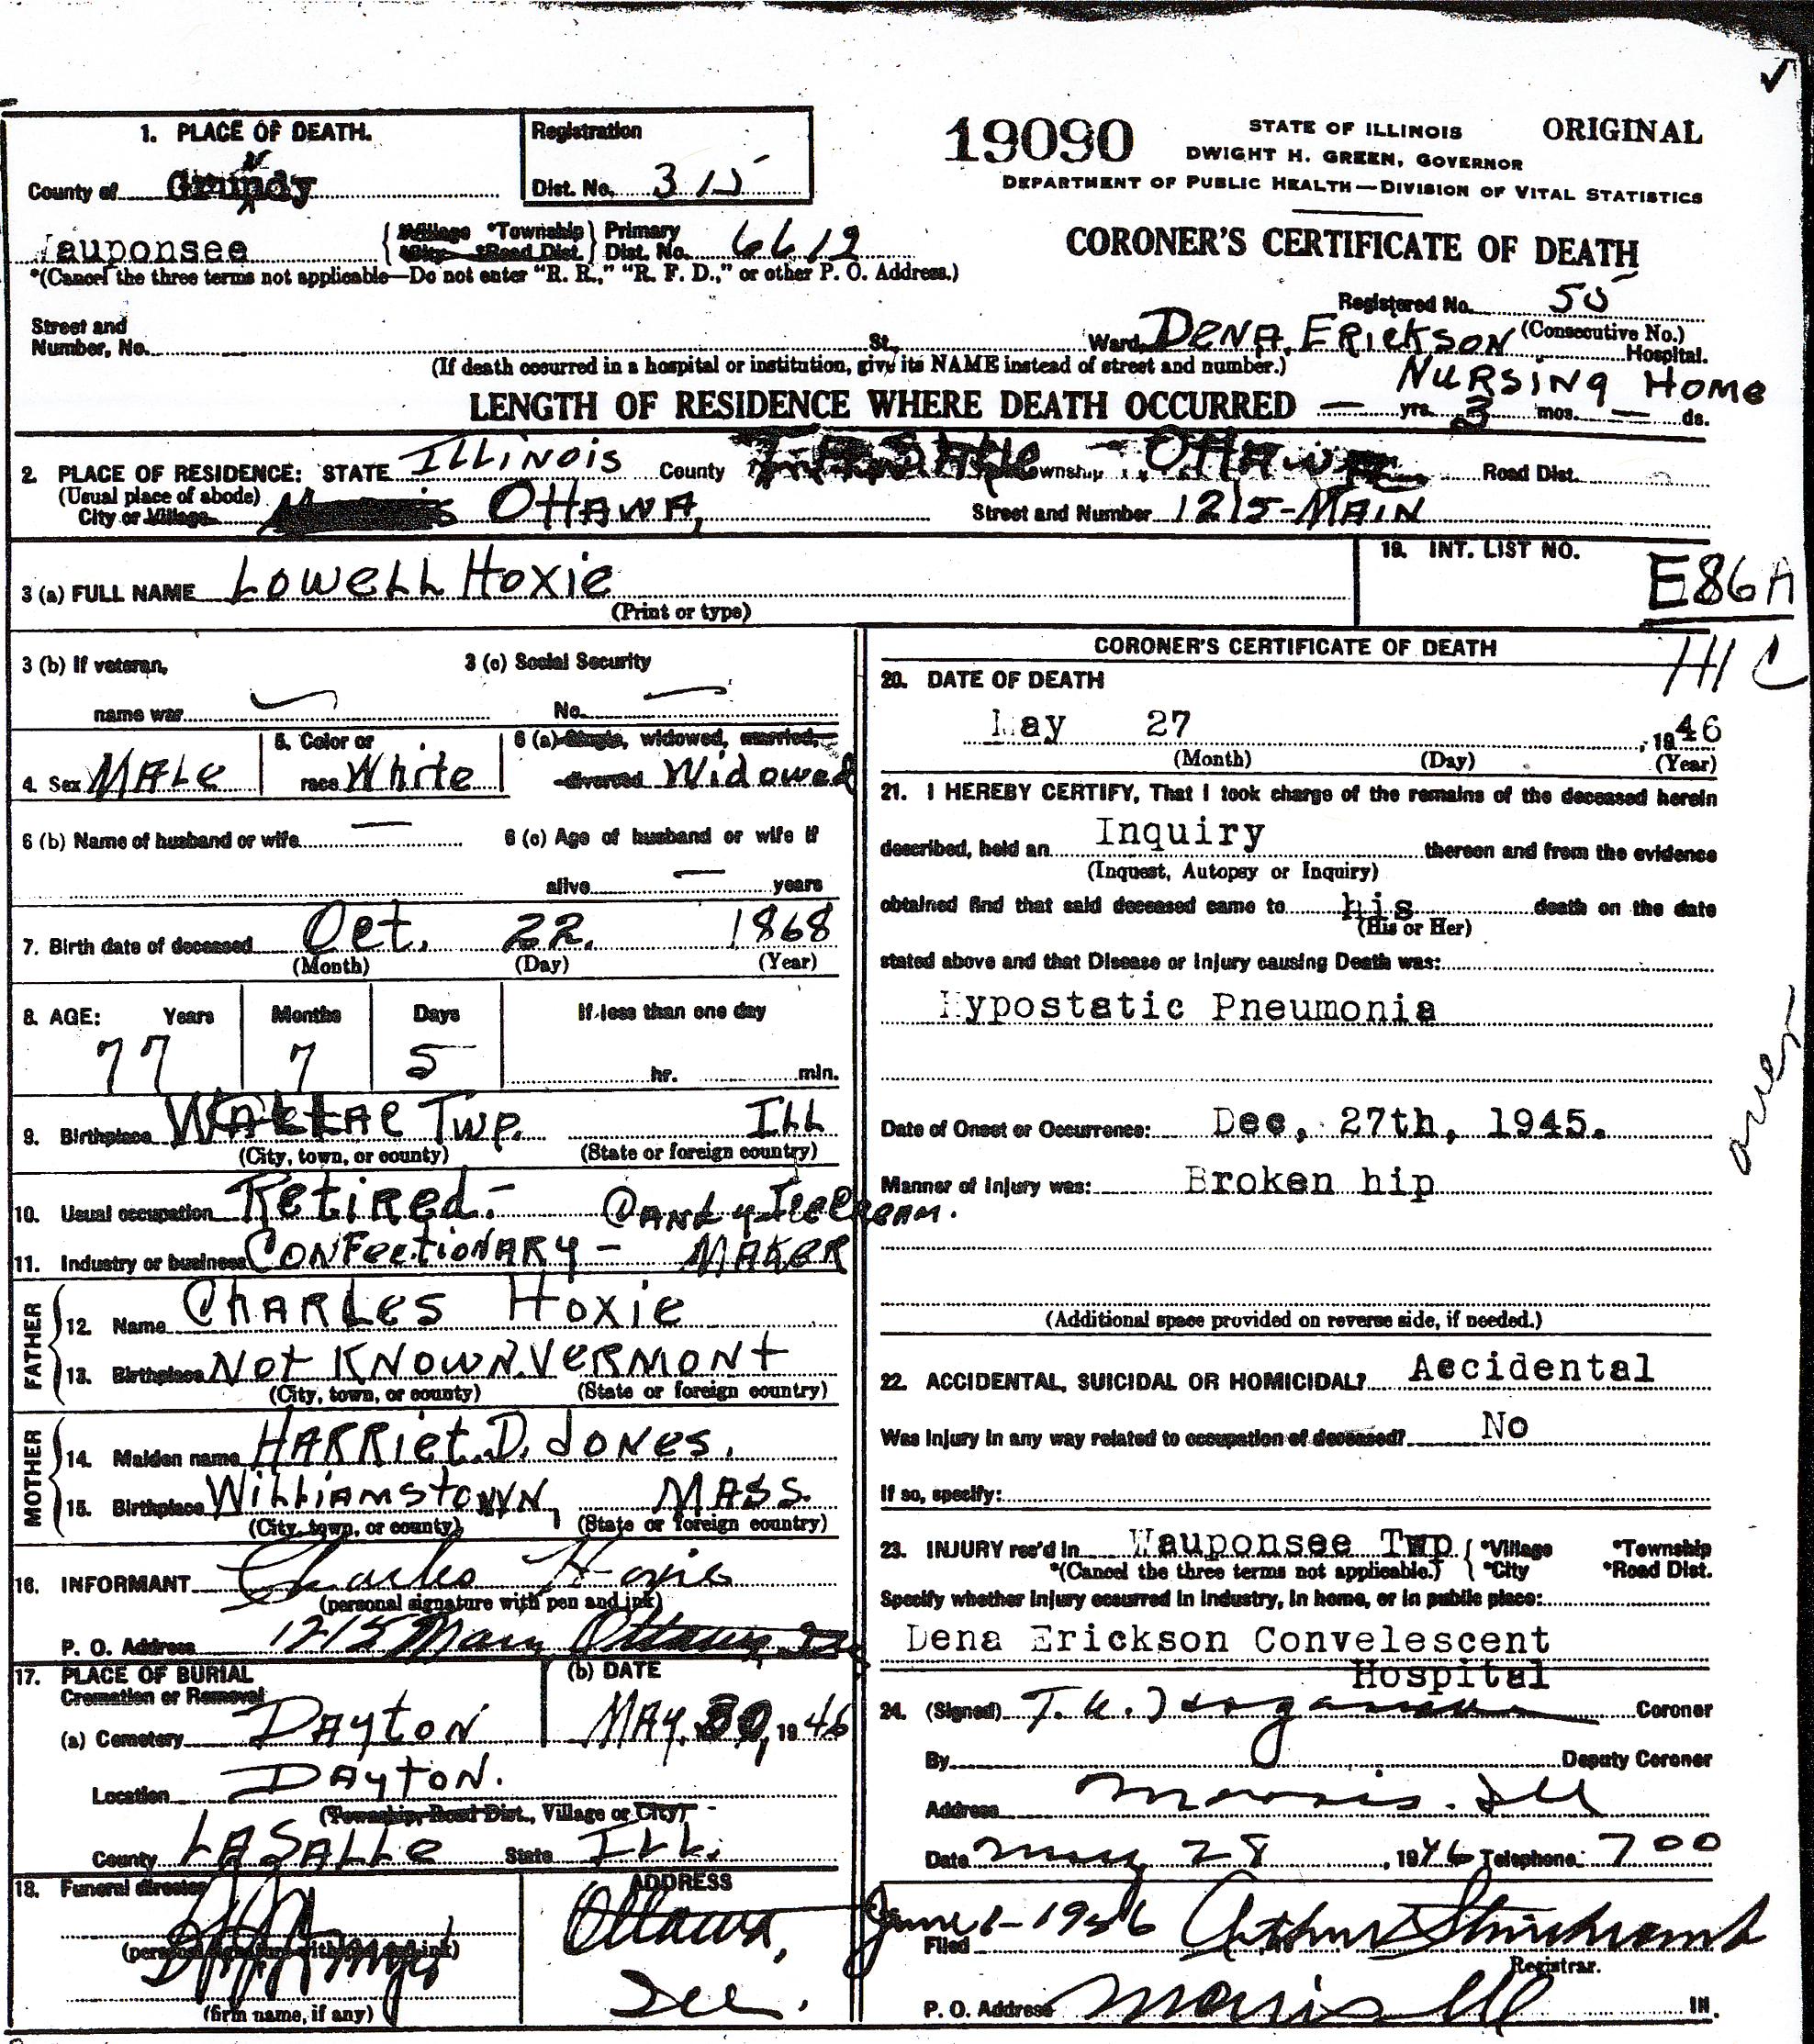 1. PLACE OF DEATH.
County of Grundy
Registration
Dist. No. 315
19090
STATE OF ILLINOIS ORIGINAL
DWIGHT H. GREEN, GOVERNOR
DEPARTMENT OF PUBLIC HEALTH—DIVISION OF VITAL STATISTICS
Wauponsee
Village *Township
City *Road Dist.
Primary
Dist. No. 6612
CORONER'S CERTIFICATE OF DEATH
*(Cancel the three terms not applicable—Do not enter "R. R.," "R. F. D.," or other P. O. Address.)
Registered No. 55
(Consecutive No.)
Street and
Number, No. St., Ward, DENA ERICKSON Hospital.
(If death occurred in a hospital or institution, give its NAME instead of street and number.) NURSING HOME
LENGTH OF RESIDENCE WHERE DEATH OCCURRED — yrs. 3 mos. — ds.
2. PLACE OF RESIDENCE: STATE ILLINOIS County LASALLE Township OTTAWA Road Dist.
(Usual place of abode)
City or Village OTTAWA, Street and Number 1215-MAIN
3 (a) FULL NAME LOWELL HOXIE
(Print or type)
19. INT. LIST NO.
E86A
111C
3 (b) If veteran,
name war
3 (c) Social Security
No. —
4. Sex MALE
5. Color or
race White
6 (a) Single, widowed, married,
divorced Widowed
6 (b) Name of husband or wife —
6 (c) Age of husband or wife if
alive — years
7. Birth date of deceased Oct. 22. 1868
(Month) (Day) (Year)
8. AGE: Years Months Days If less than one day
77 7 5 hr. min.
9. Birthplace Twp. ILL
(City, town, or county) (State or foreign country)
10. Usual occupation Retired - CANDY ICE CREAM.
11. Industry or business CONFECTIONARY - MAKER
FATHER
12. Name CHARLES HOXIE
13. Birthplace NOT KNOWN. VERMONT
(City, town, or county) (State or foreign country)
MOTHER
14. Maiden name HARRIET. D. JONES.
15. Birthplace WILLIAMSTOWN, MASS.
(City, town, or county) (State or foreign country)
16. INFORMANT Charles Hoxie
(personal signature with pen and ink)
P. O. Address 1215 Main Ottawa, Ill
17. PLACE OF BURIAL
Cremation or Removal
(a) Cemetery DAYTON
(b) DATE
MAY. 30, 1946
Location DAYTON.
(Township, Road Dist., Village or City)
County LASALLE State ILL.
18. Funeral director
(personal signature with pen and ink)
(firm name, if any)
ADDRESS
Ottawa,
Ill.
CORONER'S CERTIFICATE OF DEATH
20. DATE OF DEATH
May 27, 1946
(Month) (Day) (Year)
21. I HEREBY CERTIFY, That I took charge of the remains of the deceased herein
described, held an Inquiry thereon and from the evidence
(Inquest, Autopsy or Inquiry)
obtained find that said deceased came to his death on the date
(His or Her)
stated above and that Disease or Injury causing Death was:
Hypostatic Pneumonia
over
Date of Onset or Occurrence: Dec, 27th, 1945.
Manner of Injury was: Broken hip
(Additional space provided on reverse side, if needed.)
22. ACCIDENTAL, SUICIDAL OR HOMICIDAL? Accidental
Was injury in any way related to occupation of deceased? No
If so, specify:
23. INJURY rec'd in Wauponsee Twp *Village *Township
*(Cancel the three terms not applicable.) *City *Road Dist.
Specify whether injury occurred in industry, in home, or in public place:
Dena Erickson Convelescent
Hospital
24. (Signed) Coroner
By Deputy Coroner
Address Morris. Ill
Date May 28, 1946 Telephone: 700
Filed June 1-1946 Arthur
Registrar.
P. O. Address Morris Ill IN.